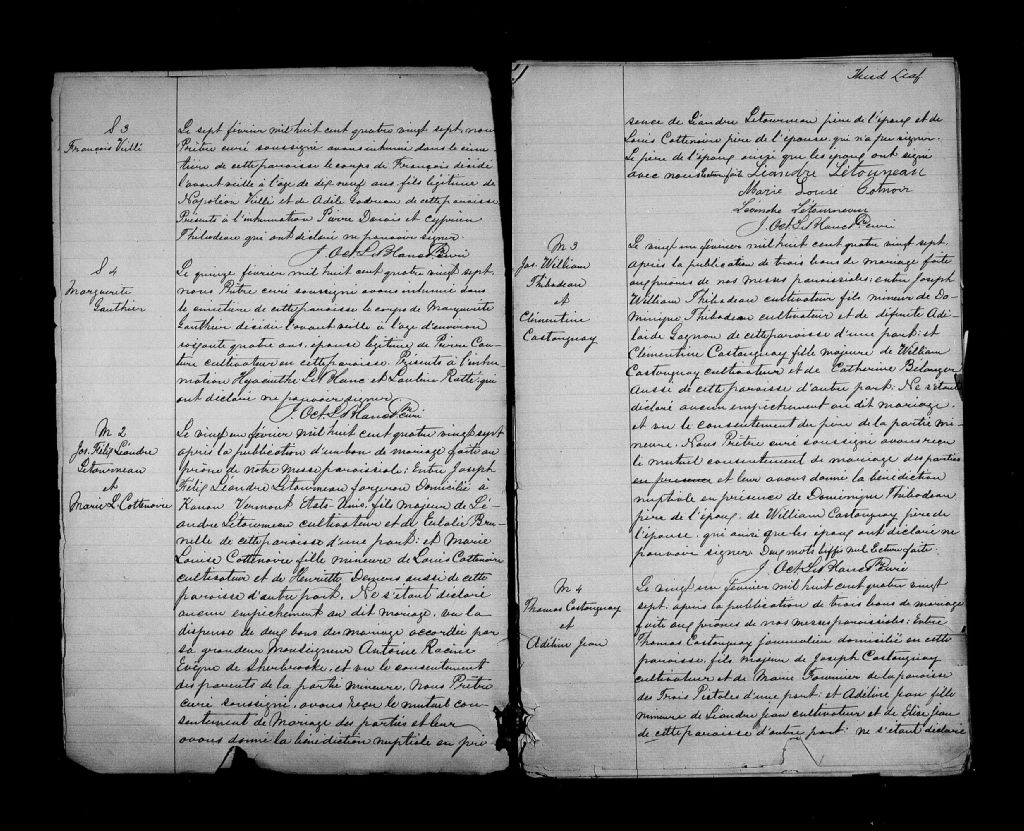 S 3
François Villé
Le sept février mil huit cent quatre vingt sept, nous
Prêtre curé soussigné avons inhumé dans le cime
tière de cette paroisse le corps de François décédé
l'avant veille à l'age de dix neuf ans fils légitime de
Napoléon Villé et de Adéle Gadreau de cette paroisse
Présents à l'inhumation Pierre et Cyprien
Thibodeau qui ont déclaré ne pouvoir signer.
J. Oct. LeBlanc Ptre Curé
S 4
Marguerite
Gauthier
Le quinze février mil huit cent quatre vingt sept,
nous Prêtre curé soussigné avons inhumé dans
le cimetière de cette paroisse le corps de Marguerite
Gauthier décédée l'avant veille à l'age d'environ
soixante quatre ans, épouse légitime de Pierre Cou
ture cultivateur en cette paroisse. Présents à l'inhu
mation Hyacinthe LeBlanc et Ratté qui
ont déclaré ne pouvoir signer
J. Oct. LeBlanc Ptre Curé
M 2
Jos. Félix Léandre
Letourneau
et
Marie L. Cottenoire
Le vingt un février mil huit cent quatre vingt sept
après la publication d'un ban de mariage faite au
prône de notre messe paroissiale; Entre Joseph
Félix Léandre Letourneau forgeron Domicilié à
Vermont Etats Unis, fils majeur de Lé-
andre Letourneau cultivateur et de Eulalie Bru
nelle de cette paroisse d'une part; et Marie
Louise Cottenoire fille mineure de Louis Cottenoire
cultivateur et de Henriette Demers aussi de cette
paroisse d'autre part. Ne s'étant déclaré
aucun empêchement au dit mariage, vu la
dispense de deux bans de mariage accordée par
sa grandeur Monseigneur Antoine Racine
Evêque de Sherbrooke, et vu le consentement
des parents de la partie mineure, Nous Prêtre
curé soussigné, avons reçu le mutuel con-
sentement de Mariage des parties et leur
avons donné la bénédiction nuptiale en pré
Third Leaf
sence de Léandre Letourneau père de l'époux et de
Louis Cottenoire père de l'épouse, qui n'a pu signer.
Le père de l'époux ainsi que les époux ont signé
avec nous Lecture faite Léandre Létourneau
Marie Louise Cotnoir
Léandre Letourneau
J. Oct. LeBlanc Ptre Curé
M 3
Jos. William
Thibodeau
et
Clémentine
Castonguay
Le vingt un février mil huit cent quatre vingt sept,
après la publication de trois bans de mariage faite
aux prônes de nos messes paroissiales; entre Joseph
William Thibodeau cultivateur fils mineur de Do-
minique Thibodeau cultivateur et de défunte Adé-
laide Gagnon de cette paroisse d'une part; et
Clémentine Castonguay fille majeure de William
Castonguay cultivateur et de Catherine Bélanger
aussi de cette paroisse d'autre part. Ne s'étant
déclaré aucun empêchement au dit mariage,
et vu le consentement du père de la partie mi-
neure, Nous Prêtre curé soussigné avons reçu
le mutuel consentement de mariage des parties
en presence et leur avons donné la bénédiction
nuptiale en présence de Dominique Thibodeau
père de l'époux, de William Castonguay père de
l'épouse, qui ainsi que les époux ont déclaré ne
pouvoir signer Deux mots biffés nuls Lecture faite.
J. Oct. LeBlanc Ptre Curé
M 4
Thomas Castonguay
et
Adéline Jean
Le vingt un février mil huit cent quatre vingt
sept, après la publication de trois bans de mariage
faite aux prônes de nos messes paroissiales; Entre
Thomas Castonguay journalier domicilié en cette
paroisse, fils majeur de Joseph Castonguay
cultivateur et de Marie Fournier de la paroisse
des Trois Pistoles d'une part; et Adéline Jean fille
mineure de Léandre Jean cultivateur et de Elise Jean
de cette paroisse d'autre part; ne s'étant déclaré